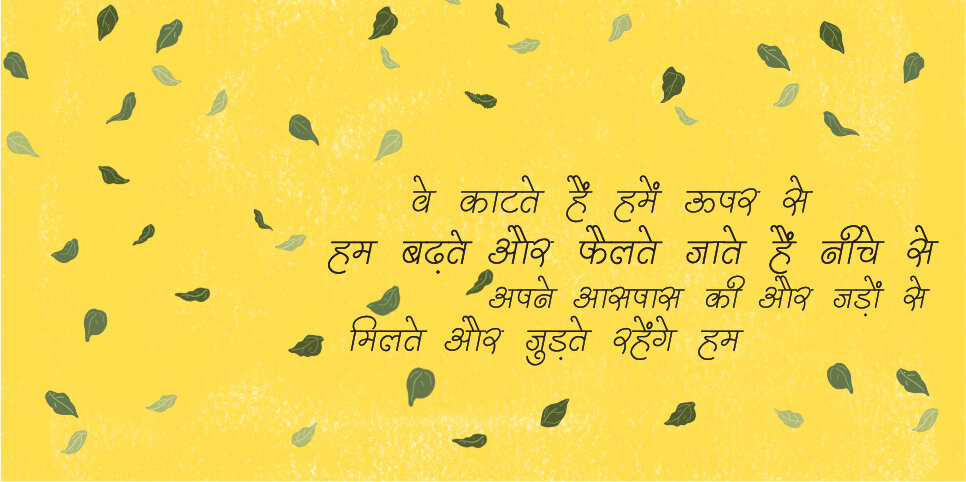 वे काटते हैं हमें ऊपर से
हम बढ़ते और फैलते जाते हैं नीचे से
अपने आसपास की और जड़ों से
मिलते और जुड़ते रहेंगे हम